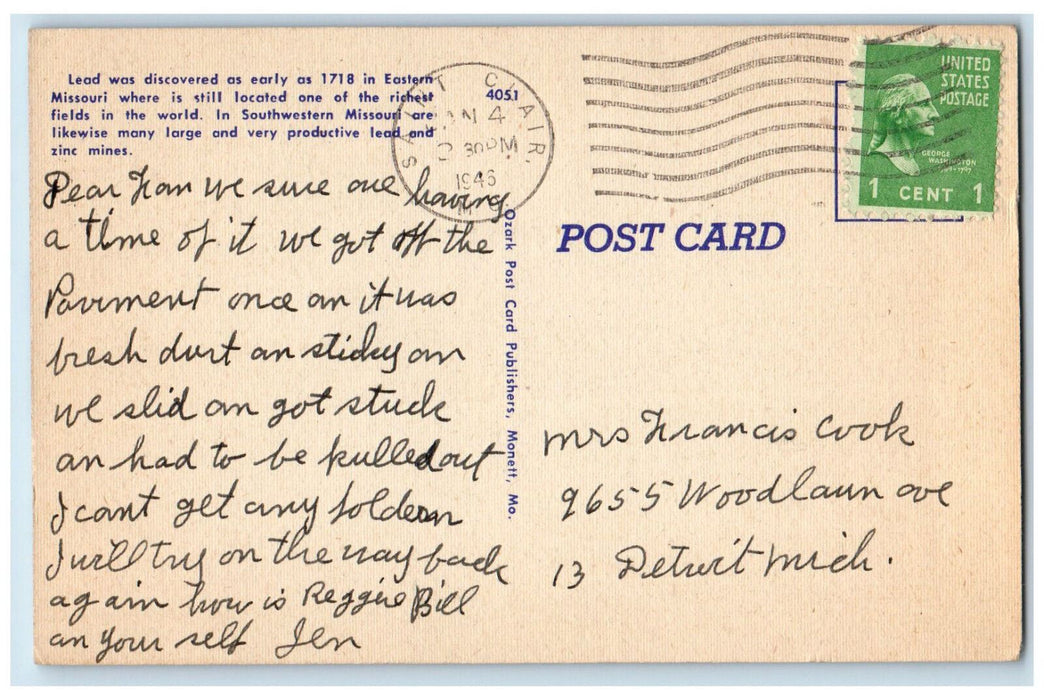 Lead was discovered as early as 1718 in Eastern
Missouri where is still located one of the richest
fields in the world. In Southwestern Missouri are
likewise many large and very productive lead and
zinc mines.
4051
SAINT CLAIR,
4
30 PM
1946
UNITED
STATES
POSTAGE
GEORGE
WASHINGTON
1 CENT 1
POST CARD
Ozark Post Card Publishers, Monett, Mo.
Dear Fran we sure are having
a time of it we got off the
Pavment once an it was
fresh durt an sticky an
we slid an got stuck
an had to be pulled out
I cant get any folders
I will try on the way back
again how is Reggie Bill
an your self Jen
Mrs Francis Cook
9655 Woodlawn ave
13 Detroit Mich.